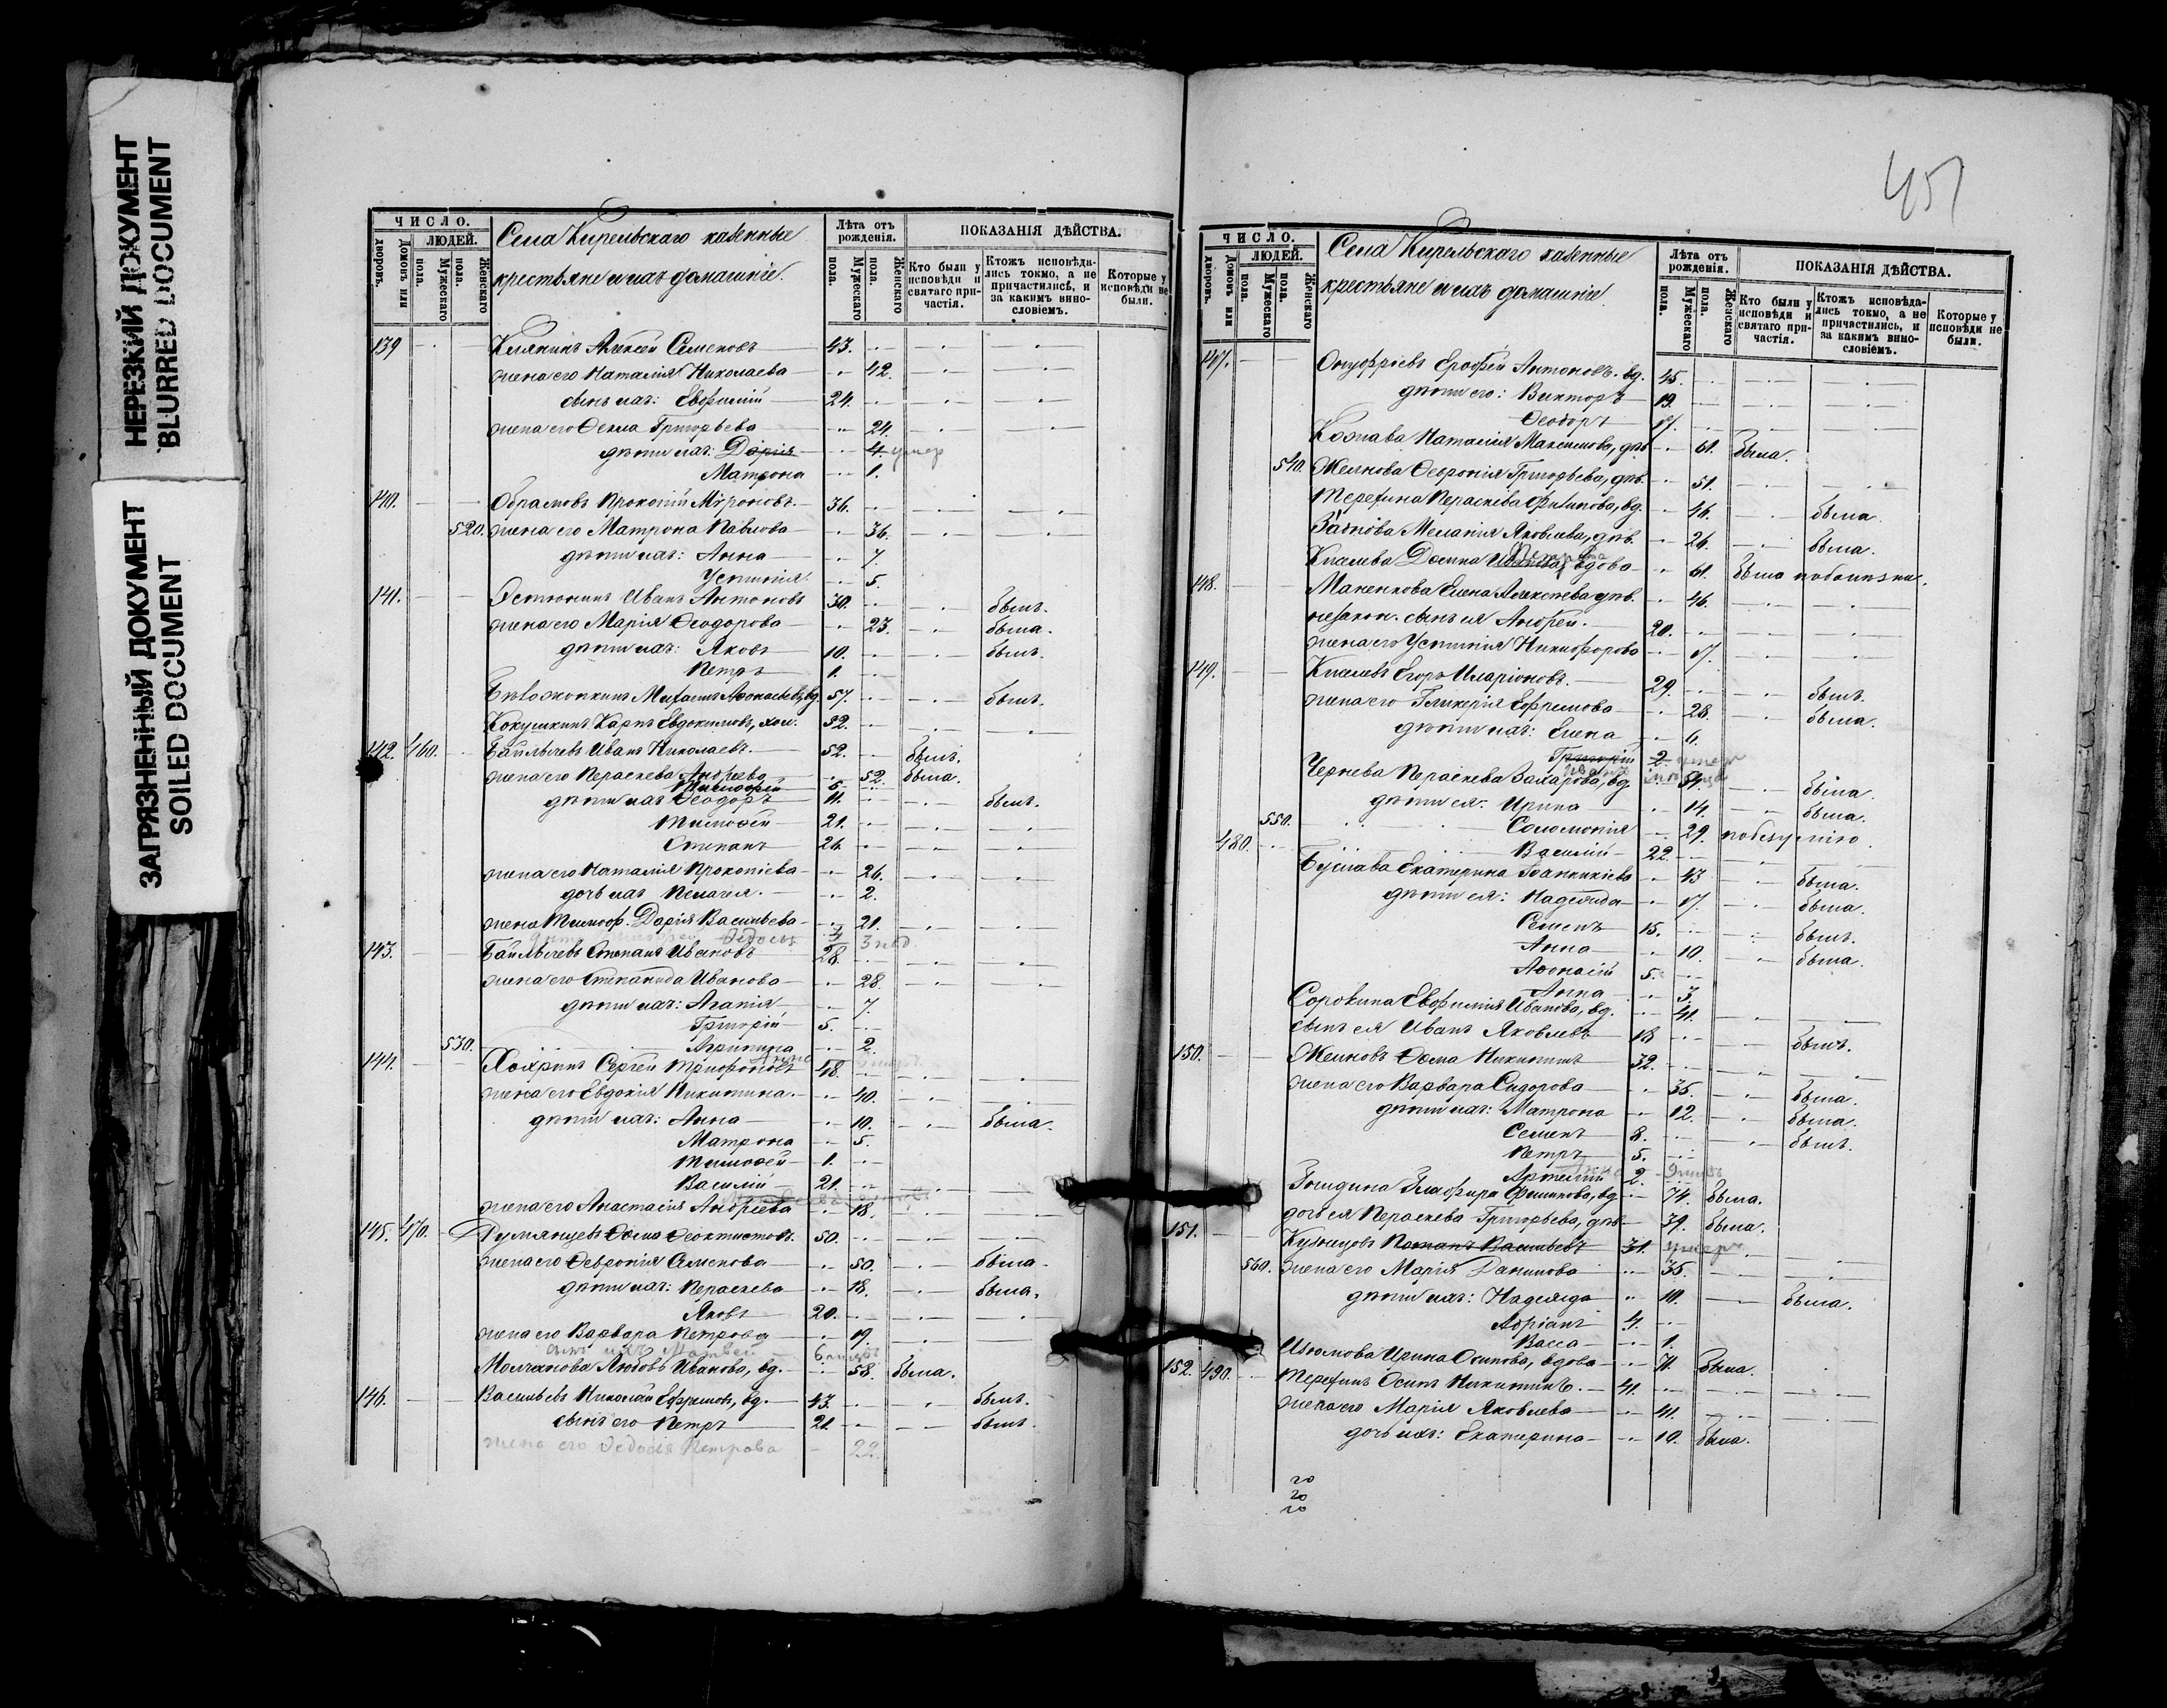 НЕРЕЗКИЙ ДОКУМЕНТ
BLURRED DOCUMENT
ЗАГРЯЗНЕННЫЙ ДОКУМЕНТ
SOILED DOCUMENT
ЧИСЛО.
ЛЮДЕЙ.
Домовъ или дворовъ.
Мужескаго пола.
Женскаго пола.
Села Кирельскаго казенные
крестьяне и ихъ домашніе.
Лѣта отъ рожденія.
Мужескаго пола.
Женскаго пола.
ПОКАЗАНІЯ ДѢЙСТВА.
Кто были у исповѣди и святаго причастія.
Ктожъ исповѣдались токмо, а не причастились, и за какимъ винословіемъ.
Которые у исповѣди не были.
139 Алексѣй Семеновъ 43.
жена его Наталія Николаева 42.
сынъ ихъ: Евфимій 24.
жена его Ѳекла Григорьева 24.
дѣти ихъ: Дарія 4. умер
Матрона 1.
140. Абрамовъ Прокопій Мѵроновъ 36.
520. жена его Матрона Павлова 36.
дѣти ихъ: Анна 7.
Устинія 5.
141. Иванъ Антоновъ 30. былъ.
жена его Марія Ѳеодорова 23. была.
дѣти ихъ: Яковъ 10. былъ.
Петръ 1.
Михаилъ вд. 57. былъ.
Кокушкинъ Карпъ Евдокимовъ, хол. 32.
142. 460. Иванъ Николаевъ 52. былъ.
жена его Параскева Андреева 52. была.
5.
дѣти ихъ Ѳеодоръ 11. былъ.
Тимоѳей 21.
Степанъ 26.
жена его Наталія Прокопіева 26.
дочь ихъ Пелагія. 2.
жена Тимоѳ. Дарія Васильева 21.
143. Степанъ Ивановъ 28.
жена его Степанида Иванова 28.
дѣти ихъ: Агапія 7.
Григорій 5.
530. Агрипина 2.
144. Сергѣй Трифоновъ 48.
жена его Евдокія Никитина 40.
дѣти ихъ: Анна 10. была.
Матрона 5.
Тимоѳей 1.
Василій 21.
жена его Анастасія Андреева 18.
145. 470. Румянцевъ Ѳома Ѳеоктистовъ. 50.
жена его Ѳевронія Семенова 50. была.
дѣти ихъ: Параскева 18. была.
Яковъ 20.
жена его Варвара Петрова 19.
сынъ ихъ Матвей 6
Молчанова Любовь Иванова, вд. 58. была.
146. Васильевъ Николай Ефремовъ, вд. 43. былъ.
сынъ его Петръ 21. былъ.
жена его Ѳедосія Петрова 22.
451
ЧИСЛО.
ЛЮДЕЙ.
Домовъ или дворовъ.
Мужескаго пола.
Женскаго пола.
Села Кирельскаго казенные
крестьяне и ихъ домашніе.
Лѣта отъ рожденія.
Мужескаго пола.
Женскаго пола.
ПОКАЗАНІЯ ДѢЙСТВА.
Кто были у исповѣди и святаго причастія.
Ктожъ исповѣдались токмо, а не причастились, и за какимъ винословіемъ.
Которые у исповѣди не были.
147. Онуфріевъ Ерофей Антоновъ. вд. 45.
дѣти его: Викторъ 19.
Ѳеодоръ 17.
Наталія Максимова, дѣв 61. была.
540. Ѳевронія Григорьева, дѣв. 51.
Терехина Параскева Филипова, вд. 46. была.
Меланія Яковлева, дѣв. 26. была.
Домна вдова 61. была
148. Маненкова Елена Алексѣева дѣв. 46.
незакон. сынъ ея Андрей. 20.
жена его Устинія Никифорова 17.
149. Егоръ Иларіоновъ. 29. былъ.
жена его Гликерія Ефремова 28. была.
дѣти ихъ: Елена 6.
Григорій 2. умеръ
Чернева Параскева Захарова, вд. 54. была.
дѣти ея: Ирина 14. была.
550. Соломонія 29.
480. Василій 22.
Екатерина 43 была.
дѣти ея: Надежда 17. была.
Семенъ 15. былъ.
Анна 10. была.
Аѳанасій 5.
Анна 3.
Сорокина Евфимія Иванова, вд. 41.
сынъ ея Иванъ Яковлевъ 18 былъ.
150. Ѳома Никитинъ 32.
жена его Варвара Сидорова 35. была.
дѣти ихъ: Матрона 12. была.
Семенъ 8. былъ.
Петръ 5.
Артемій 2.
Глафира Филипова, вд. 74. была.
дочь ея Параскева Григорьева, дѣв 39. была.
151. Кузнецовъ Потапъ Васильевъ 31. умеръ
560. жена его Марія Данилова 35.
дѣти ихъ: Надежда 10. была.
Адріанъ 4.
Васса 1.
Ирина Осипова, вдова 71. была.
152. 490. Терехинъ Осипъ Никитинъ. 41.
жена его Марія Яковлева 41.
дочь ихъ: Екатерина 10. была.
20
20
20